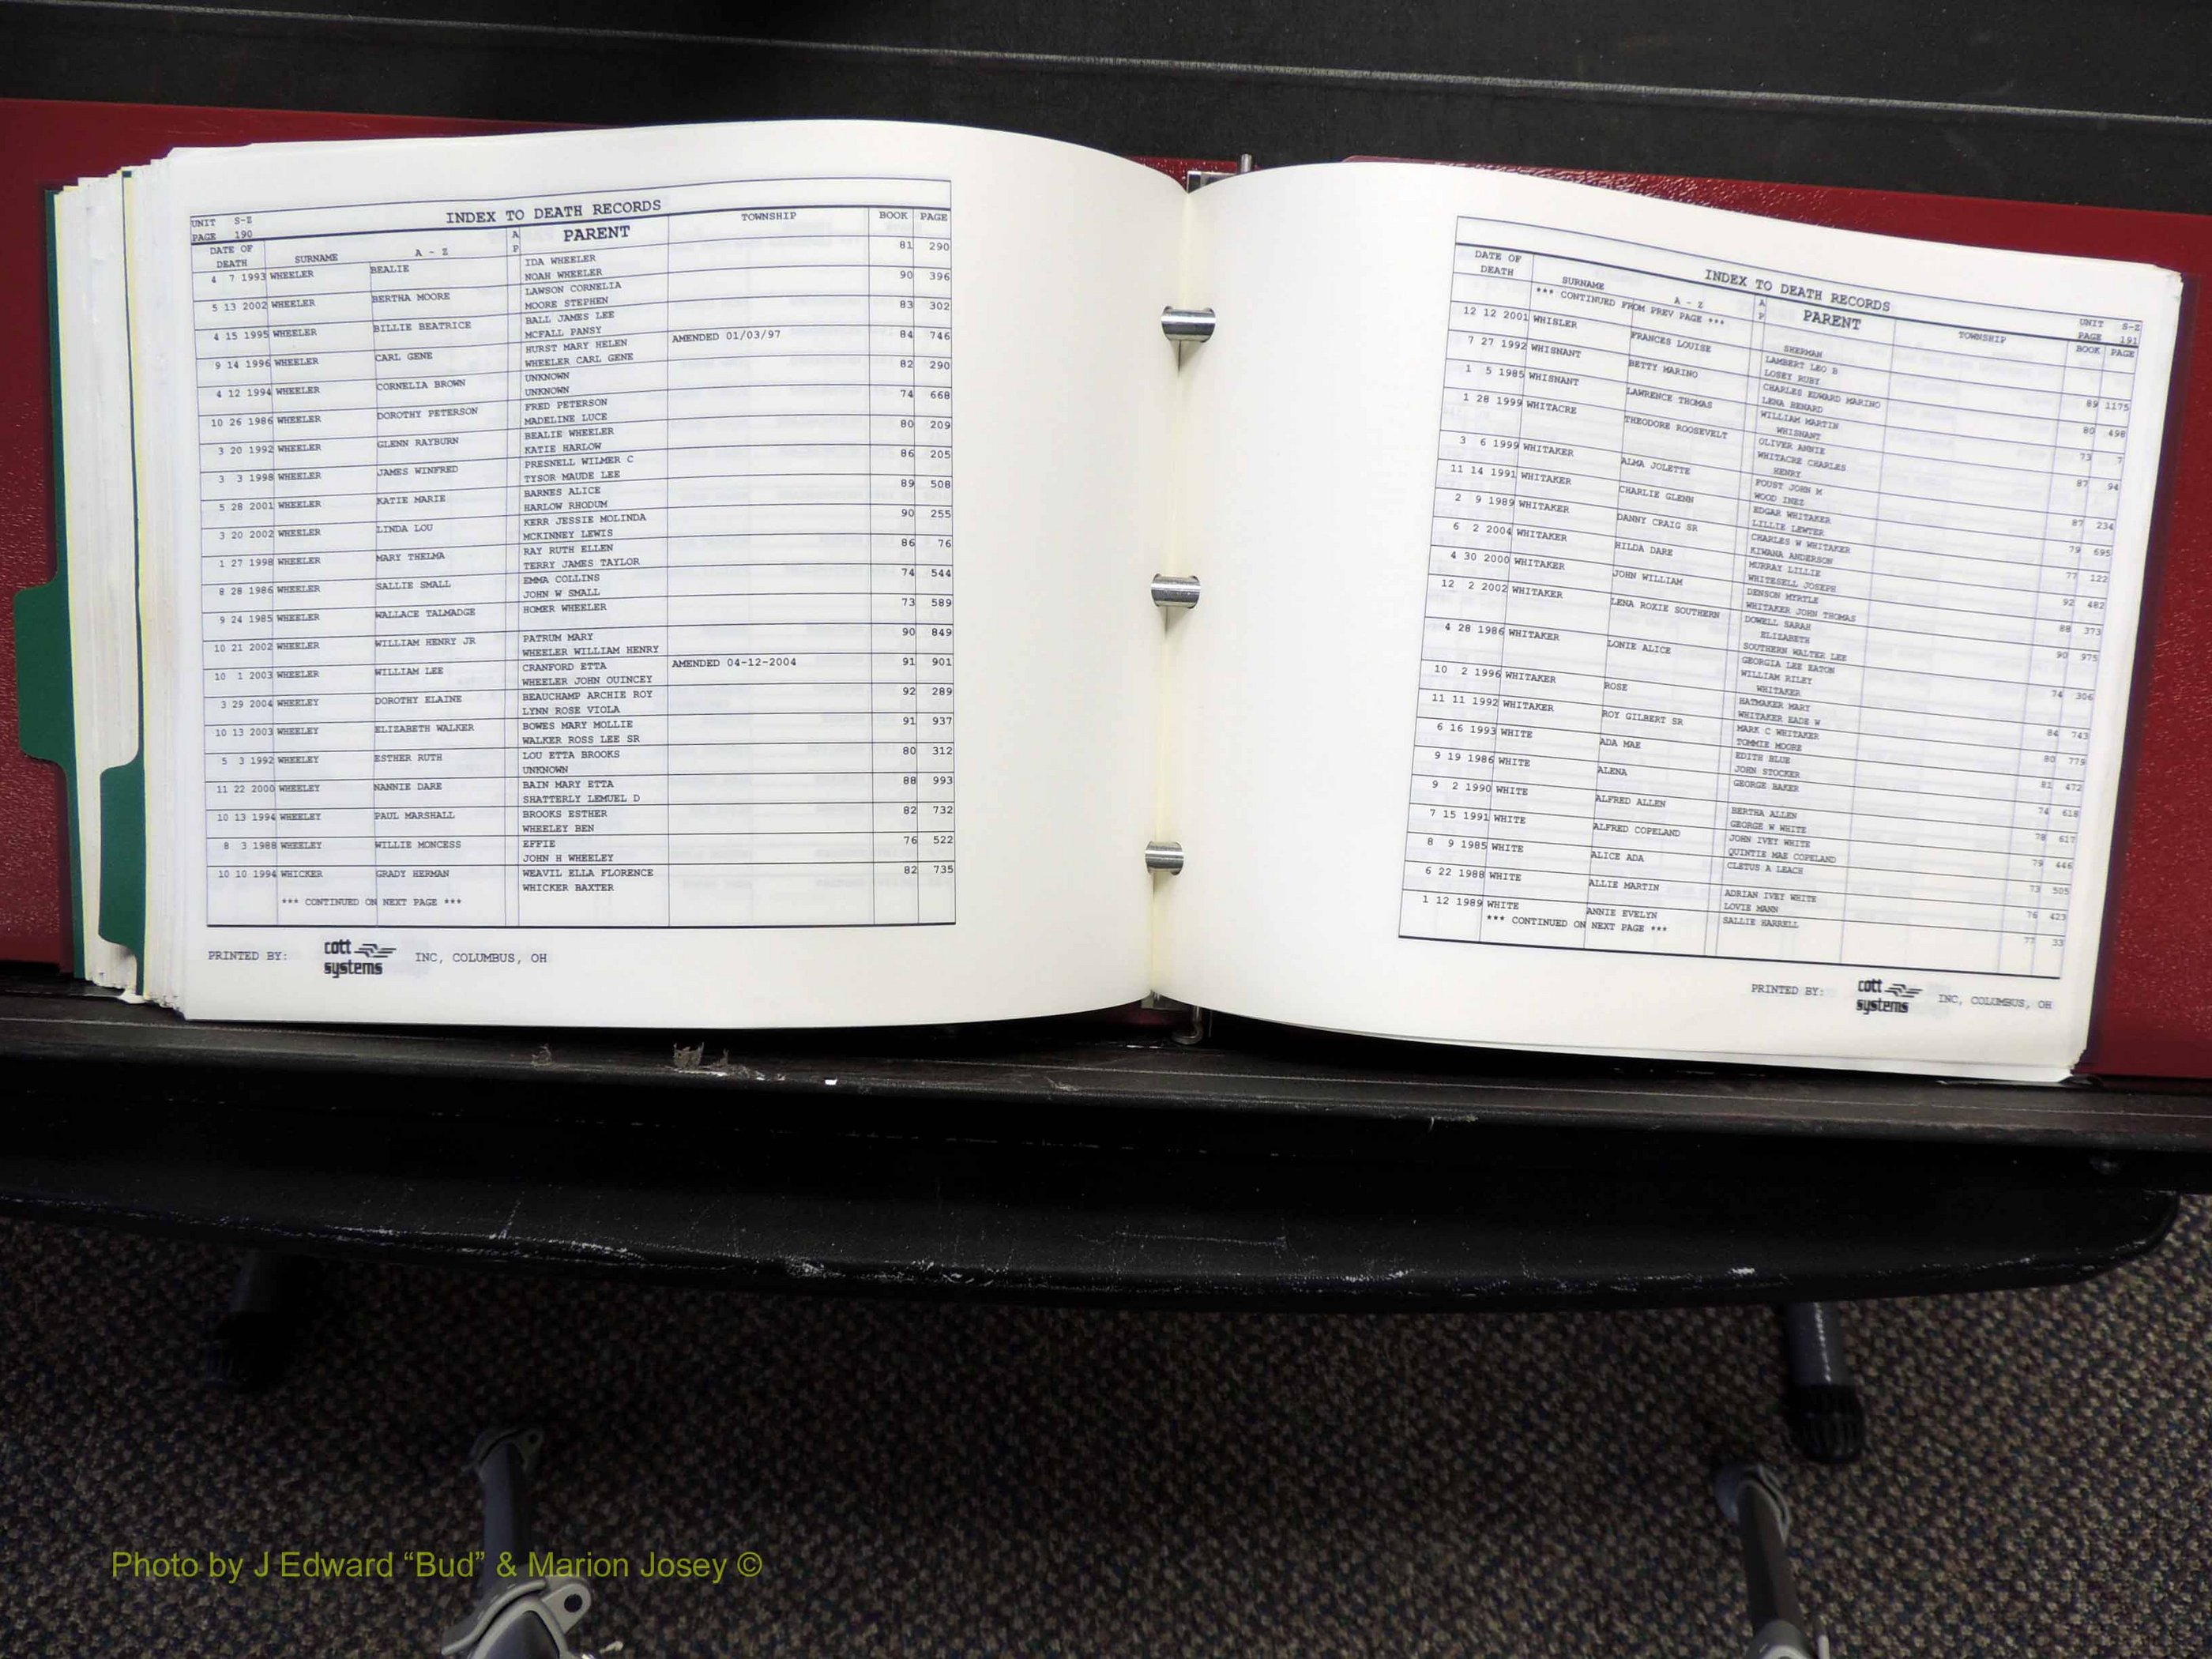 UNIT S-Z
PAGE 190
INDEX TO DEATH RECORDS
DATE OF DEATH SURNAME A - Z A P PARENT TOWNSHIP BOOK PAGE
4 7 1993 WHEELER BEALIE IDA WHEELER 81 290
NOAH WHEELER
5 13 2002 WHEELER BERTHA MOORE LAWSON CORNELIA 90 396
MOORE STEPHEN
4 15 1995 WHEELER BILLIE BEATRICE BALL JAMES LEE 83 302
MCFALL PANSY
9 14 1996 WHEELER CARL GENE HURST MARY HELEN AMENDED 01/03/97 84 746
WHEELER CARL GENE
4 12 1994 WHEELER CORNELIA BROWN UNKNOWN 82 290
UNKNOWN
10 26 1986 WHEELER DOROTHY PETERSON FRED PETERSON 74 668
MADELINE LUCE
3 20 1992 WHEELER GLENN RAYBURN BEALIE WHEELER 80 209
KATIE HARLOW
3 3 1998 WHEELER JAMES WINFRED PRESNELL WILMER C 86 205
TYSOR MAUDE LEE
5 28 2001 WHEELER KATIE MARIE BARNES ALICE 89 508
HARLOW RHODUM
3 20 2002 WHEELER LINDA LOU KERR JESSIE MOLINDA 90 255
MCKINNEY LEWIS
1 27 1998 WHEELER MARY THELMA RAY RUTH ELLEN 86 76
TERRY JAMES TAYLOR
8 28 1986 WHEELER SALLIE SMALL EMMA COLLINS 74 544
JOHN W SMALL
9 24 1985 WHEELER WALLACE TALMADGE HOMER WHEELER 73 589
10 21 2002 WHEELER WILLIAM HENRY JR PATRUM MARY 90 849
WHEELER WILLIAM HENRY
10 1 2003 WHEELER WILLIAM LEE CRANFORD ETTA AMENDED 04-12-2004 91 901
WHEELER JOHN QUINCEY
3 29 2004 WHEELEY DOROTHY ELAINE BEAUCHAMP ARCHIE ROY 92 289
LYNN ROSE VIOLA
10 13 2003 WHEELEY ELIZABETH WALKER BOWES MARY MOLLIE 91 937
WALKER ROSS LEE SR
5 3 1992 WHEELEY ESTHER RUTH LOU ETTA BROOKS 80 312
UNKNOWN
11 22 2000 WHEELEY NANNIE DARE BAIN MARY ETTA 88 993
SHATTERLY LEMUEL D
10 13 1994 WHEELEY PAUL MARSHALL BROOKS ESTHER 82 732
WHEELEY BEN
8 3 1988 WHEELEY WILLIE MONCESS EFFIE 76 522
JOHN H WHEELEY
10 10 1994 WHICKER GRADY HERMAN WEAVIL ELLA FLORENCE 82 735
WHICKER BAXTER
*** CONTINUED ON NEXT PAGE ***
PRINTED BY: cott systems INC, COLUMBUS, OH
INDEX TO DEATH RECORDS
UNIT S-Z
PAGE 191
DATE OF DEATH SURNAME A - Z A P PARENT TOWNSHIP BOOK PAGE
*** CONTINUED FROM PREV PAGE ***
SHERMAN
12 12 2001 WHISLER FRANCES LOUISE LAMBERT LEO B 89 1175
LOSEY RUBY
7 27 1992 WHISNANT BETTY MARINO CHARLES EDWARD MARINO 80 498
LENA BENARD
1 5 1985 WHISNANT LAWRENCE THOMAS WILLIAM MARTIN 73 7
WHISNANT
OLIVER ANNIE
1 28 1999 WHITACRE THEODORE ROOSEVELT WHITACRE CHARLES 87 94
HENRY
3 6 1999 WHITAKER ALMA JOLETTE FOUST JOHN M 87 234
WOOD INEZ
11 14 1991 WHITAKER CHARLIE GLENN EDGAR WHITAKER 79 695
LILLIE LEWTER
2 9 1989 WHITAKER DANNY CRAIG SR CHARLES W WHITAKER 77 122
KIWANA ANDERSON
6 2 2004 WHITAKER HILDA DARE MURRAY LILLIE 92 482
WHITESELL JOSEPH
4 30 2000 WHITAKER JOHN WILLIAM DENSON MYRTLE 88 373
WHITAKER JOHN THOMAS
12 2 2002 WHITAKER LENA ROXIE SOUTHERN DOWELL SARAH 90 975
ELIZABETH
SOUTHERN WALTER LEE
4 28 1986 WHITAKER LONIE ALICE GEORGIA LEE EATON 74 306
WILLIAM RILEY
WHITAKER
10 2 1996 WHITAKER ROSE HATMAKER MARY 84 743
WHITAKER EADE W
11 11 1992 WHITAKER ROY GILBERT SR MARK C WHITAKER 80 779
TOMMIE MOORE
6 16 1993 WHITE ADA MAE EDITH BLUE 81 472
JOHN STOCKER
9 19 1986 WHITE ALENA GEORGE BAKER 74 618
9 2 1990 WHITE ALFRED ALLEN BERTHA ALLEN 78 617
GEORGE W WHITE
7 15 1991 WHITE ALFRED COPELAND JOHN IVEY WHITE 79 446
QUINTIE MAE COPELAND
8 9 1985 WHITE ALICE ADA CLETUS A LEACH 73 505
6 22 1988 WHITE ALLIE MARTIN ADRIAN IVEY WHITE 76 423
LOVIE MANN
1 12 1989 WHITE ANNIE EVELYN SALLIE HARRELL 77 33
*** CONTINUED ON NEXT PAGE ***
PRINTED BY: cott systems INC, COLUMBUS, OH
Photo by J Edward “Bud” & Marion Josey ©